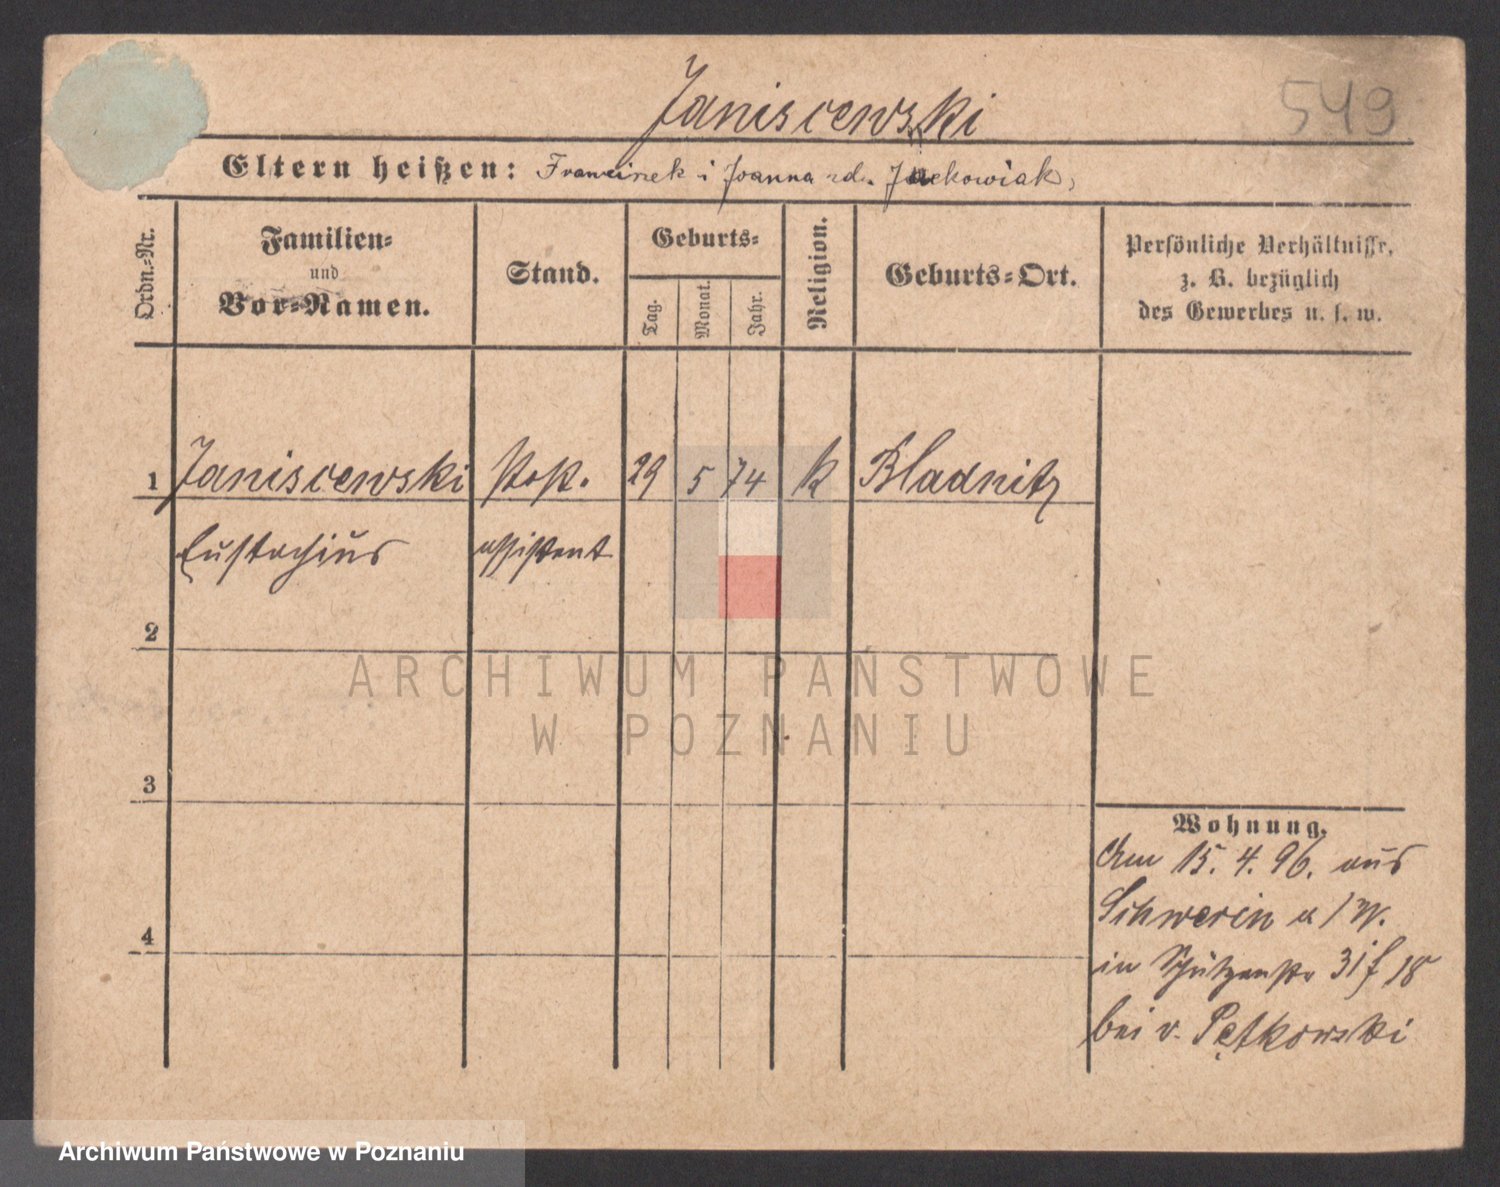 Janiscewski
549
Eltern heißen: Franciszek i Joanna zd. Jackowiak,
Ordn.-Nr.
Familien-
und
Vor-Namen.
Stand.
Geburts-
Tag.
Monat.
Jahr.
Religion.
Geburts-Ort.
Persönliche Verhältnisse,
z. B. bezüglich
des Gewerbes u. s. w.
1 Janiscewski Post. 29 5 74 k Bladnitz
Eustachius assistent
2
ARCHIWUM PAŃSTWOWE
W POZNANIU
3
Wohnung.
Am 15. 4. 96. aus
Schwerin a/W.
in Schützenstr 31 f 18
bei v. Pętkowski
4
Archiwum Państwowe w Poznaniu